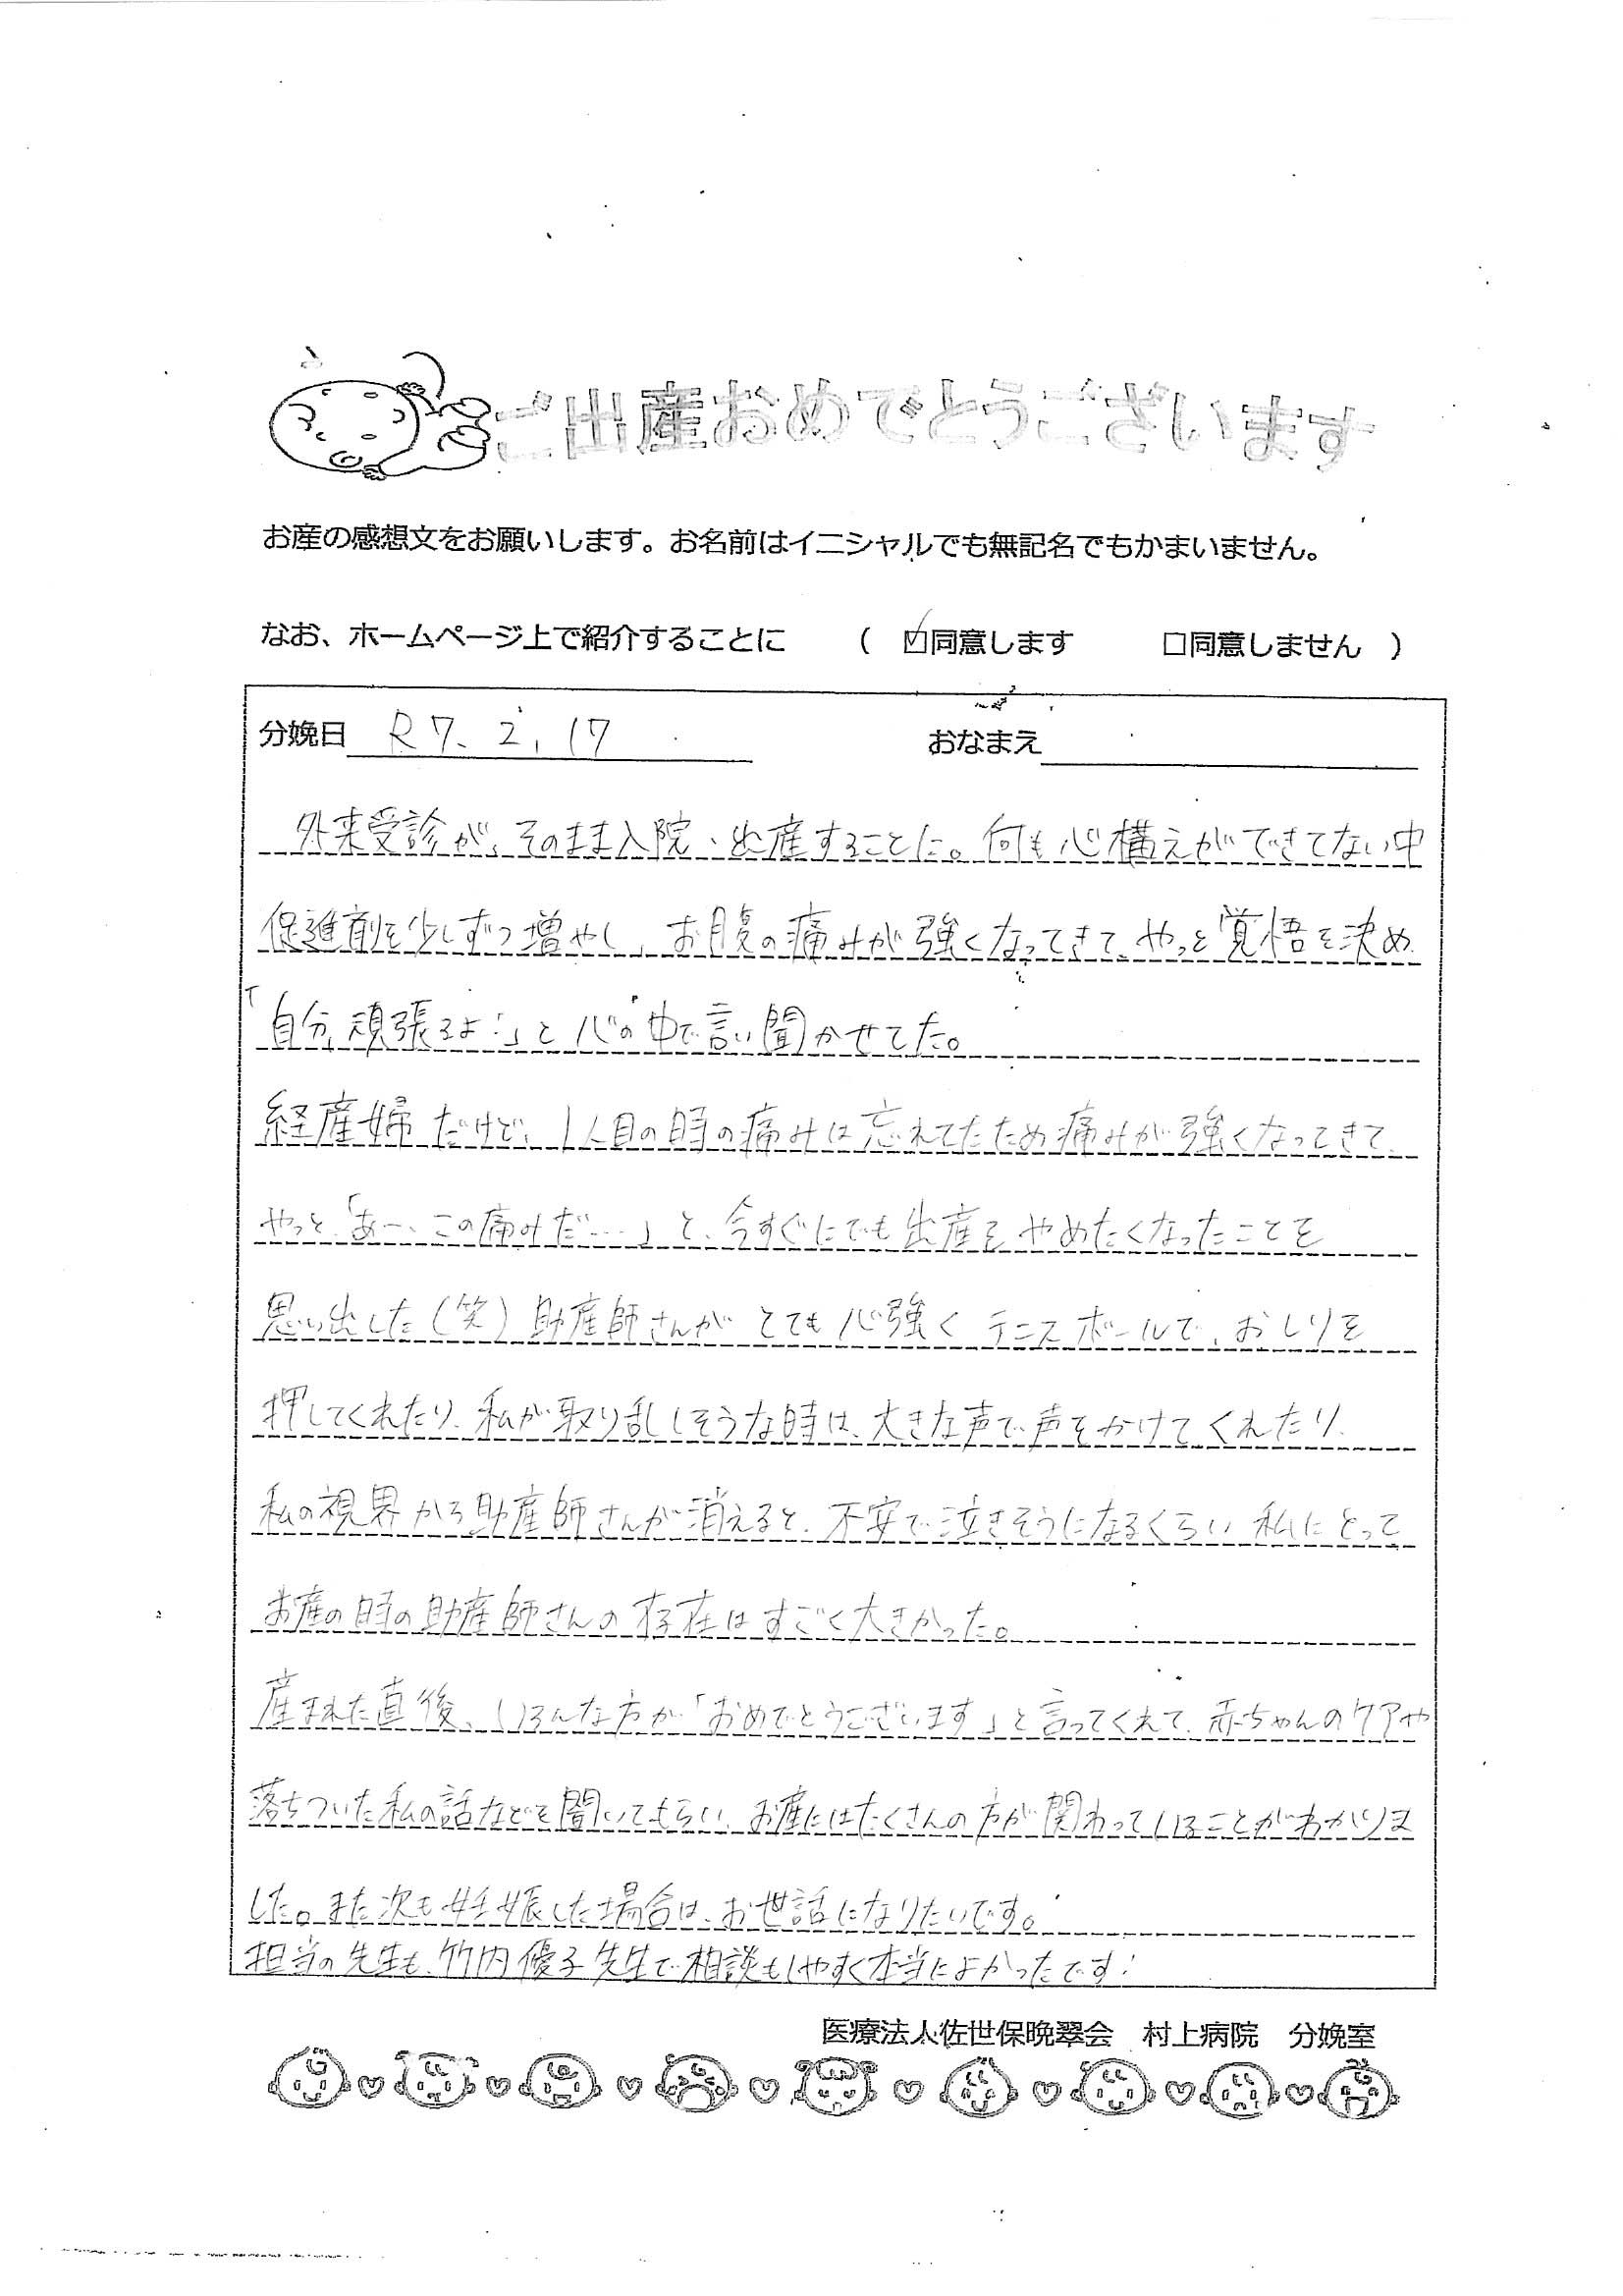 ご出産おめでとうございます
お産の感想文をお願いします。お名前はイニシャルでも無記名でもかまいません。
なお、ホームページ上で紹介することに ( ☑同意します □同意しません )
分娩日 R7.2.17 おなまえ
外来受診が、そのまま入院、出産することに。何も心構えができてない中
促進剤を少しずつ増やし、お腹の痛みが強くなってきて、やっと覚悟を決め
「自分、頑張るよ!」と心の中で言い聞かせてた。
経産婦だけど、1人目の時の痛みは忘れてたため痛みが強くなってきて、
やっと「あー、この痛みだ…」と、今すぐにでも出産をやめたくなったことを
思い出した(笑)助産師さんがとても心強くテニスボールで、おしりを
押してくれたり、私が取り乱しそうな時は、大きな声で声をかけてくれたり、
私の視界から助産師さんが消えると、不安で泣きそうになるくらい私にとって
お産の時の助産師さんの存在はすごく大きかった。
産まれた直後、いろんな方が「おめでとうございます」と言ってくれて、赤ちゃんのケアや
落ちついた私の話などを聞いてもらい、お産にはたくさんの方が関わっていることがわかりま
した。また次も妊娠した場合は、お世話になりたいです。
担当の先生も、竹内優子先生で相談もしやすく本当によかったです!
医療法人佐世保晩翠会 村上病院 分娩室